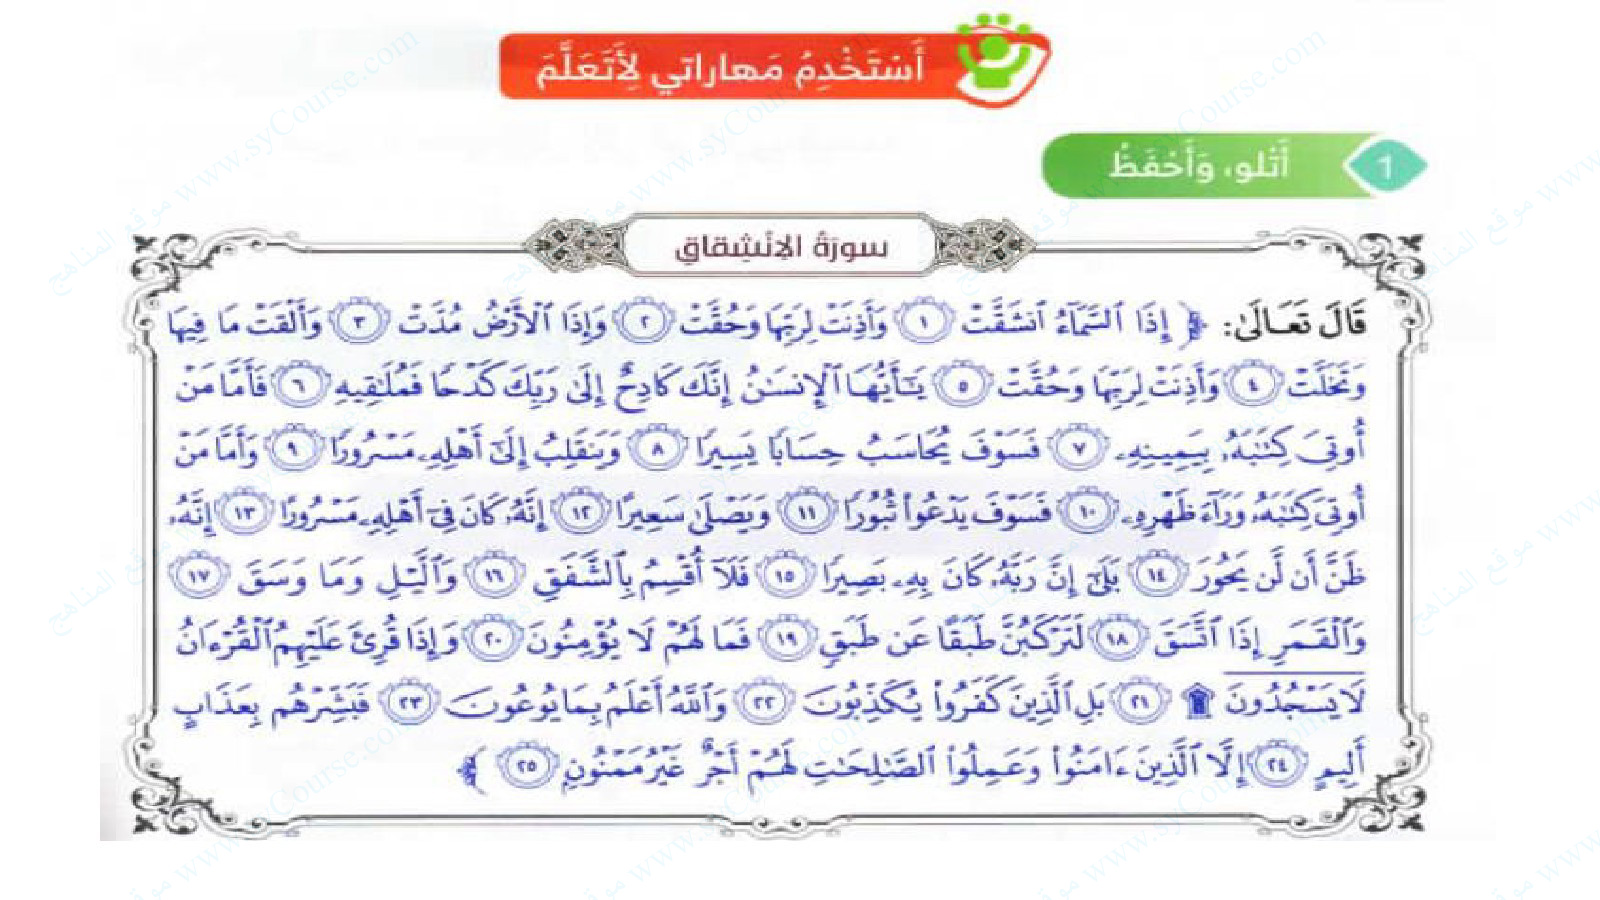 أَسْتَخْدِمُ مَهاراتي لِأَتَعَلَّمَ
1 أَتْلو، وَأَحْفَظُ
سورَةُ الِانْشِقاقِ
قَالَ تَعَـالَىٰ: ﴿ إِذَا ٱلسَّمَآءُ ٱنشَقَّتْ ١ وَأَذِنَتْ لِرَبِّهَا وَحُقَّتْ ٢ وَإِذَا ٱلْأَرْضُ مُدَّتْ ٣ وَأَلْقَتْ مَا فِيهَا
وَتَخَلَّتْ ٤ وَأَذِنَتْ لِرَبِّهَا وَحُقَّتْ ٥ يَـٰٓأَيُّهَا ٱلْإِنسَـٰنُ إِنَّكَ كَادِحٌ إِلَىٰ رَبِّكَ كَدْحًا فَمُلَـٰقِيهِ ٦ فَأَمَّا مَنْ
أُوتِيَ كِتَـٰبَهُۥ بِيَمِينِهِۦ ٧ فَسَوْفَ يُحَاسَبُ حِسَابًا يَسِيرًا ٨ وَيَنقَلِبُ إِلَىٰٓ أَهْلِهِۦ مَسْرُورًا ٩ وَأَمَّا مَنْ
أُوتِيَ كِتَـٰبَهُۥ وَرَآءَ ظَهْرِهِۦ ١٠ فَسَوْفَ يَدْعُوا۟ ثُبُورًا ١١ وَيَصْلَىٰ سَعِيرًا ١٢ إِنَّهُۥ كَانَ فِىٓ أَهْلِهِۦ مَسْرُورًا ١٣ إِنَّهُۥ
ظَنَّ أَن لَّن يَحُورَ ١٤ بَلَىٰٓ إِنَّ رَبَّهُۥ كَانَ بِهِۦ بَصِيرًا ١٥ فَلَآ أُقْسِمُ بِٱلشَّفَقِ ١٦ وَٱلَّيْلِ وَمَا وَسَقَ ١٧
وَٱلْقَمَرِ إِذَا ٱتَّسَقَ ١٨ لَتَرْكَبُنَّ طَبَقًا عَن طَبَقٍ ١٩ فَمَا لَهُمْ لَا يُؤْمِنُونَ ٢٠ وَإِذَا قُرِئَ عَلَيْهِمُ ٱلْقُرْءَانُ
لَا يَسْجُدُونَ ۩ ٢١ بَلِ ٱلَّذِينَ كَفَرُوا۟ يُكَذِّبُونَ ٢٢ وَٱللَّهُ أَعْلَمُ بِمَا يُوعُونَ ٢٣ فَبَشِّرْهُم بِعَذَابٍ
أَلِيمٍ ٢٤ إِلَّا ٱلَّذِينَ ءَامَنُوا۟ وَعَمِلُوا۟ ٱلصَّـٰلِحَـٰتِ لَهُمْ أَجْرٌ غَيْرُ مَمْنُونٍۭ ٢٥ ﴾
موقع المناهج www.syCourse.com